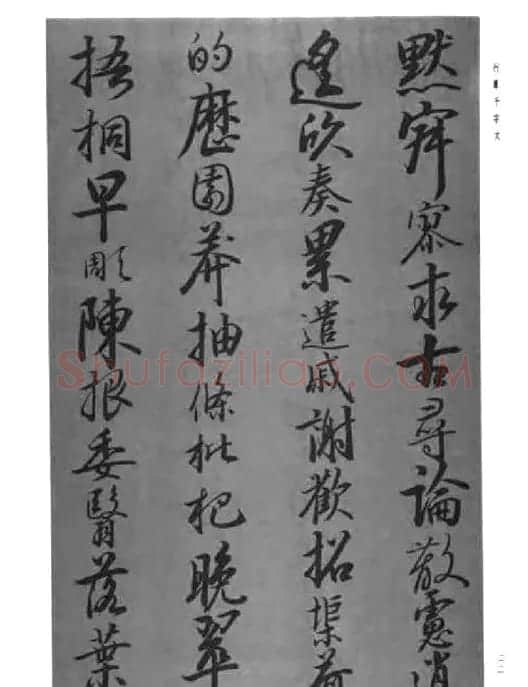 行書千字文
默寂寥求古尋論散慮逍
遙欣奏累遣戚謝歡招渠荷
的歷園莽抽條枇杷晚翠
梧桐早彫陳根委翳落葉
Shufaziliao.COM